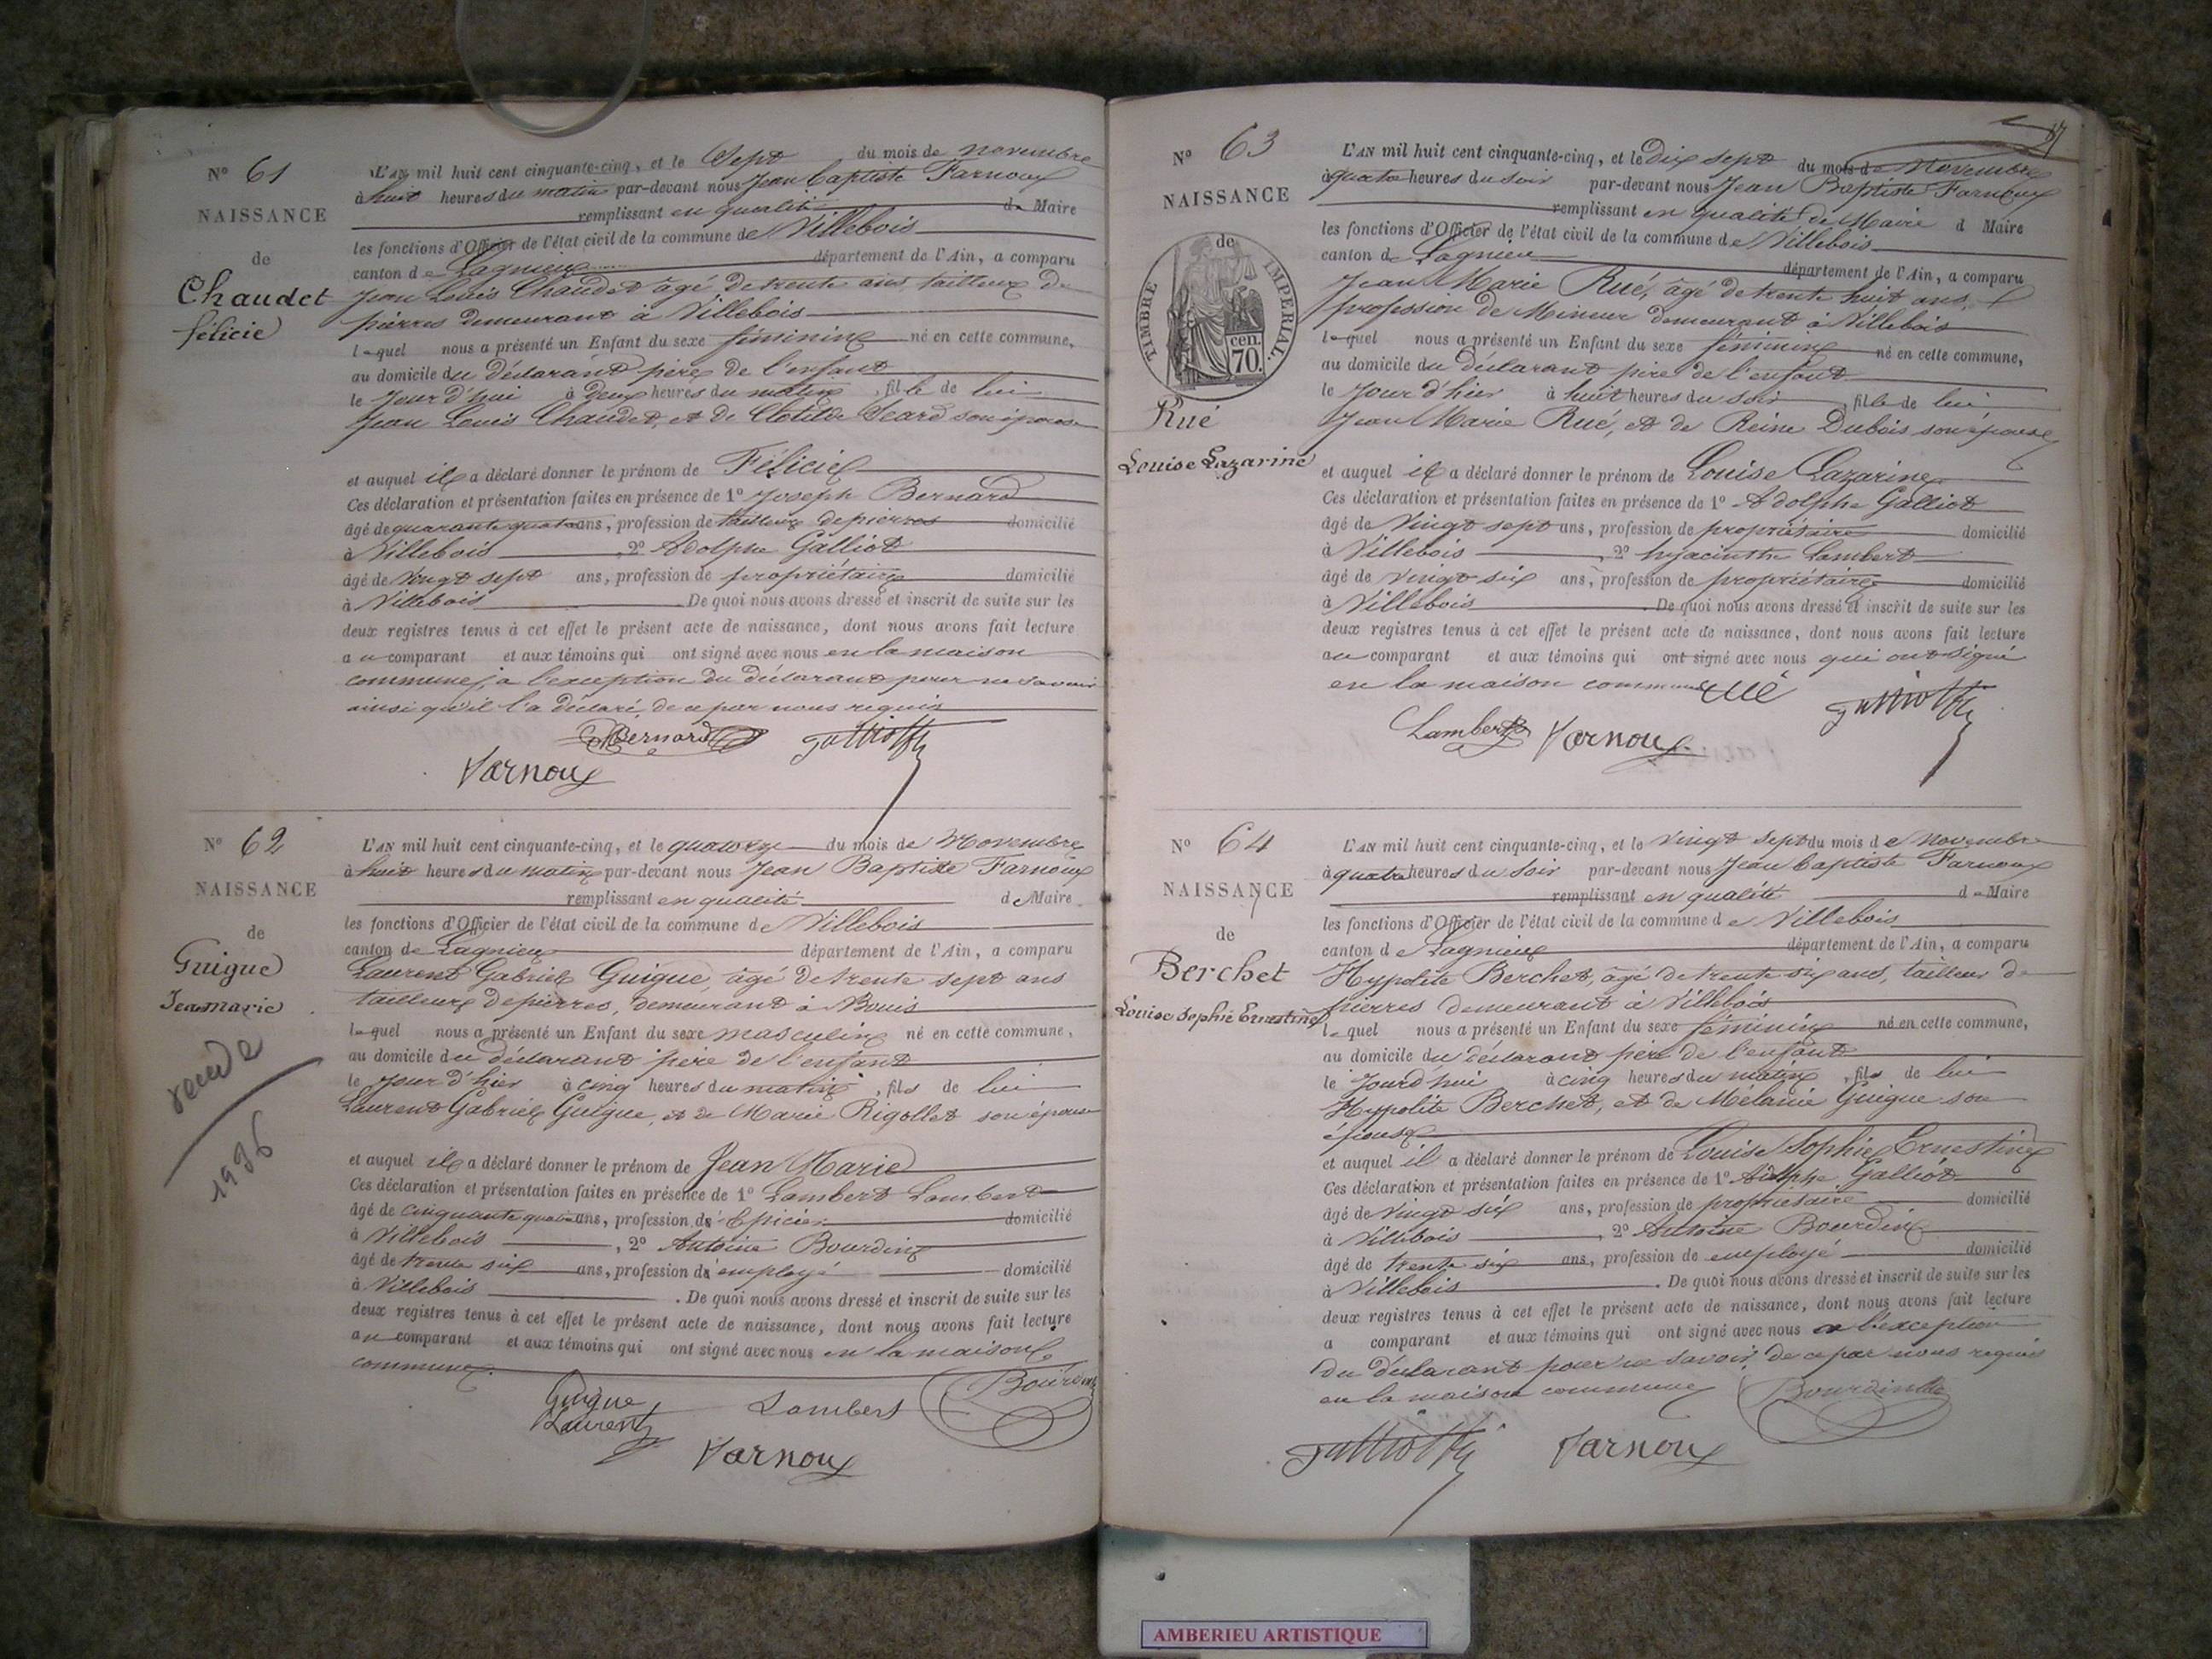 N° 61
NAISSANCE
de
Chaudet
félicie
L'AN mil huit cent cinquante-cinq, et le Sept du mois de novembre
à huit heures du matin par-devant nous Jean baptiste Farnoux
remplissant en qualité de Maire
les fonctions d'Officier de l'état civil de la commune de Villebois
canton de Lagnieu département de l'Ain, a comparu
Jean Louis Chaudet âgé de trente ans, tailleur de
pierres demeurant à Villebois
lequel nous a présenté un Enfant du sexe féminin né en cette commune,
au domicile du déclarant père de l'enfant
le Jour d'hui à Deux heures du matin, fille de lui
Jean Louis Chaudet, et de Clotilde Seard son épouse
et auquel il a déclaré donner le prénom de Félicie
Ces déclaration et présentation faites en présence de 1° Joseph Bernard
âgé de quarante quatre ans, profession de tailleur de pierres domicilié
à Villebois, 2° Adolphe Galliot
âgé de Vingt sept ans, profession de propriétaire domicilié
à Villebois. De quoi nous avons dressé et inscrit de suite sur les
deux registres tenus à cet effet le présent acte de naissance, dont nous avons fait lecture
au comparant et aux témoins qui ont signé avec nous en la maison
commune, a l'exception du déclarant pour ne savoir
ainsi qu'il l'a déclaré, de ce par nous requis
Bernard Galliot
Farnoux
N° 62
NAISSANCE
de
Guigue
Jean marie
1936
L'AN mil huit cent cinquante-cinq, et le quatorze du mois de Novembre
à huit heures du matin par-devant nous Jean Baptiste Farnoux
remplissant en qualité de Maire
les fonctions d'Officier de l'état civil de la commune de Villebois
canton de Lagnieu département de l'Ain, a comparu
Laurent Gabriel Guigue, âgé de trente sept ans
tailleur de pierres, demeurant à Bouis
lequel nous a présenté un Enfant du sexe masculin né en cette commune,
au domicile du déclarant père de l'enfant
le Jour d'hier à cinq heures du matin, fils de lui
Laurent Gabriel Guigue, et de Marie Rigollet son épouse
et auquel il a déclaré donner le prénom de Jean Marie
Ces déclaration et présentation faites en présence de 1° Lambert Lambert
âgé de cinquante quatre ans, profession d'Epicier domicilié
à Villebois, 2° Antoine Bourdin
âgé de trente six ans, profession d'employé domicilié
à Villebois. De quoi nous avons dressé et inscrit de suite sur les
deux registres tenus à cet effet le présent acte de naissance, dont nous avons fait lecture
au comparant et aux témoins qui ont signé avec nous en la maison
commune.
Guigue Lambert Bourdin
Laurent
Farnoux
N° 63
NAISSANCE
de
TIMBRE IMPERIAL.
cen.
70.
Rué
Louise Lazarine
L'AN mil huit cent cinquante-cinq, et le Dix sept du mois de Novembre
à quatre heures du soir par-devant nous Jean Baptiste Farnoux
remplissant en qualité de Maire d Maire
les fonctions d'Officier de l'état civil de la commune de Villebois
canton de Lagnieu département de l'Ain, a comparu
Jean Marie Rué, âgé de trente huit ans,
profession de Mineur demeurant à Villebois
lequel nous a présenté un Enfant du sexe féminin né en cette commune,
au domicile du déclarant père de l'enfant
le Jour d'hier à huit heures du soir, fille de lui
Jean Marie Rué, et de Reine Dubois son épouse
et auquel il a déclaré donner le prénom de Louise Lazarine
Ces déclaration et présentation faites en présence de 1° Adolphe Galliot
âgé de Vingt sept ans, profession de propriétaire domicilié
à Villebois, 2° hyacinthe Lambert
âgé de vingt six ans, profession de propriétaire domicilié
à Villebois. De quoi nous avons dressé et inscrit de suite sur les
deux registres tenus à cet effet le présent acte de naissance, dont nous avons fait lecture
au comparant et aux témoins qui ont signé avec nous qui ont signé
en la maison commune Rué Galliot
Lambert Farnoux
N° 64
NAISSANCE
de
Berchet
Louise Sophie Ernestine
L'AN mil huit cent cinquante-cinq, et le Vingt sept du mois de novembre
à quatre heures du soir par-devant nous Jean baptiste Farnoux
remplissant en qualité de Maire
les fonctions d'Officier de l'état civil de la commune de Villebois
canton de Lagnieu département de l'Ain, a comparu
Hypolite Berchet, âgé de trente six ans, tailleur de
pierres demeurant à Villebois
lequel nous a présenté un Enfant du sexe féminin né en cette commune,
au domicile du déclarant père de l'enfant
le Jourd'hui à cinq heures du matin, fils de lui
Hypolite Berchet, et de Mélanie Guigue son
épouse
et auquel il a déclaré donner le prénom de Louise Sophie Ernestine
Ces déclaration et présentation faites en présence de 1° Adolphe Galliot
âgé de vingt six ans, profession de propriétaire domicilié
à Villebois, 2° Antoine Bourdin
âgé de trente six ans, profession de employé domicilié
à Villebois. De quoi nous avons dressé et inscrit de suite sur les
deux registres tenus à cet effet le présent acte de naissance, dont nous avons fait lecture
a comparant et aux témoins qui ont signé avec nous a l'exception
du déclarant pour ne savoir, de ce par nous requis
en la maison commune Bourdin
Galliot Farnoux
AMBERIEU ARTISTIQUE